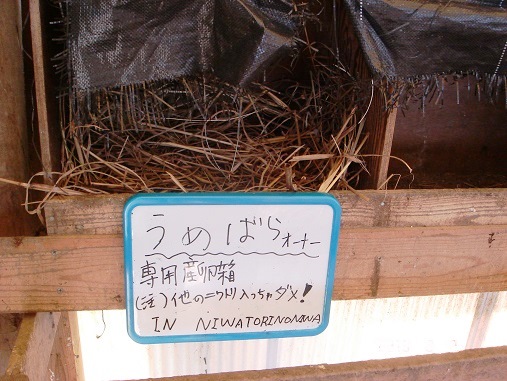 うめばらオーナー
専用産卵箱
(注)他のニワトリ入っちゃダメ!
IN NIWATORINONIWA